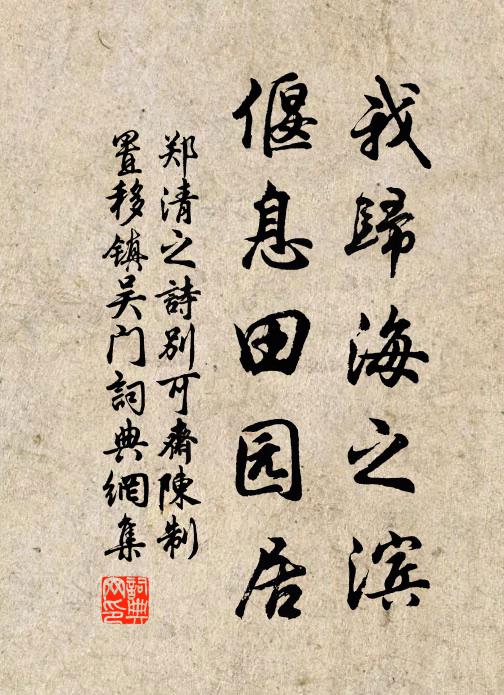 我歸海之滨
偃息田园居
郑清之詩别可齋陳制
置移镇吴门詞典網集
詞典网印